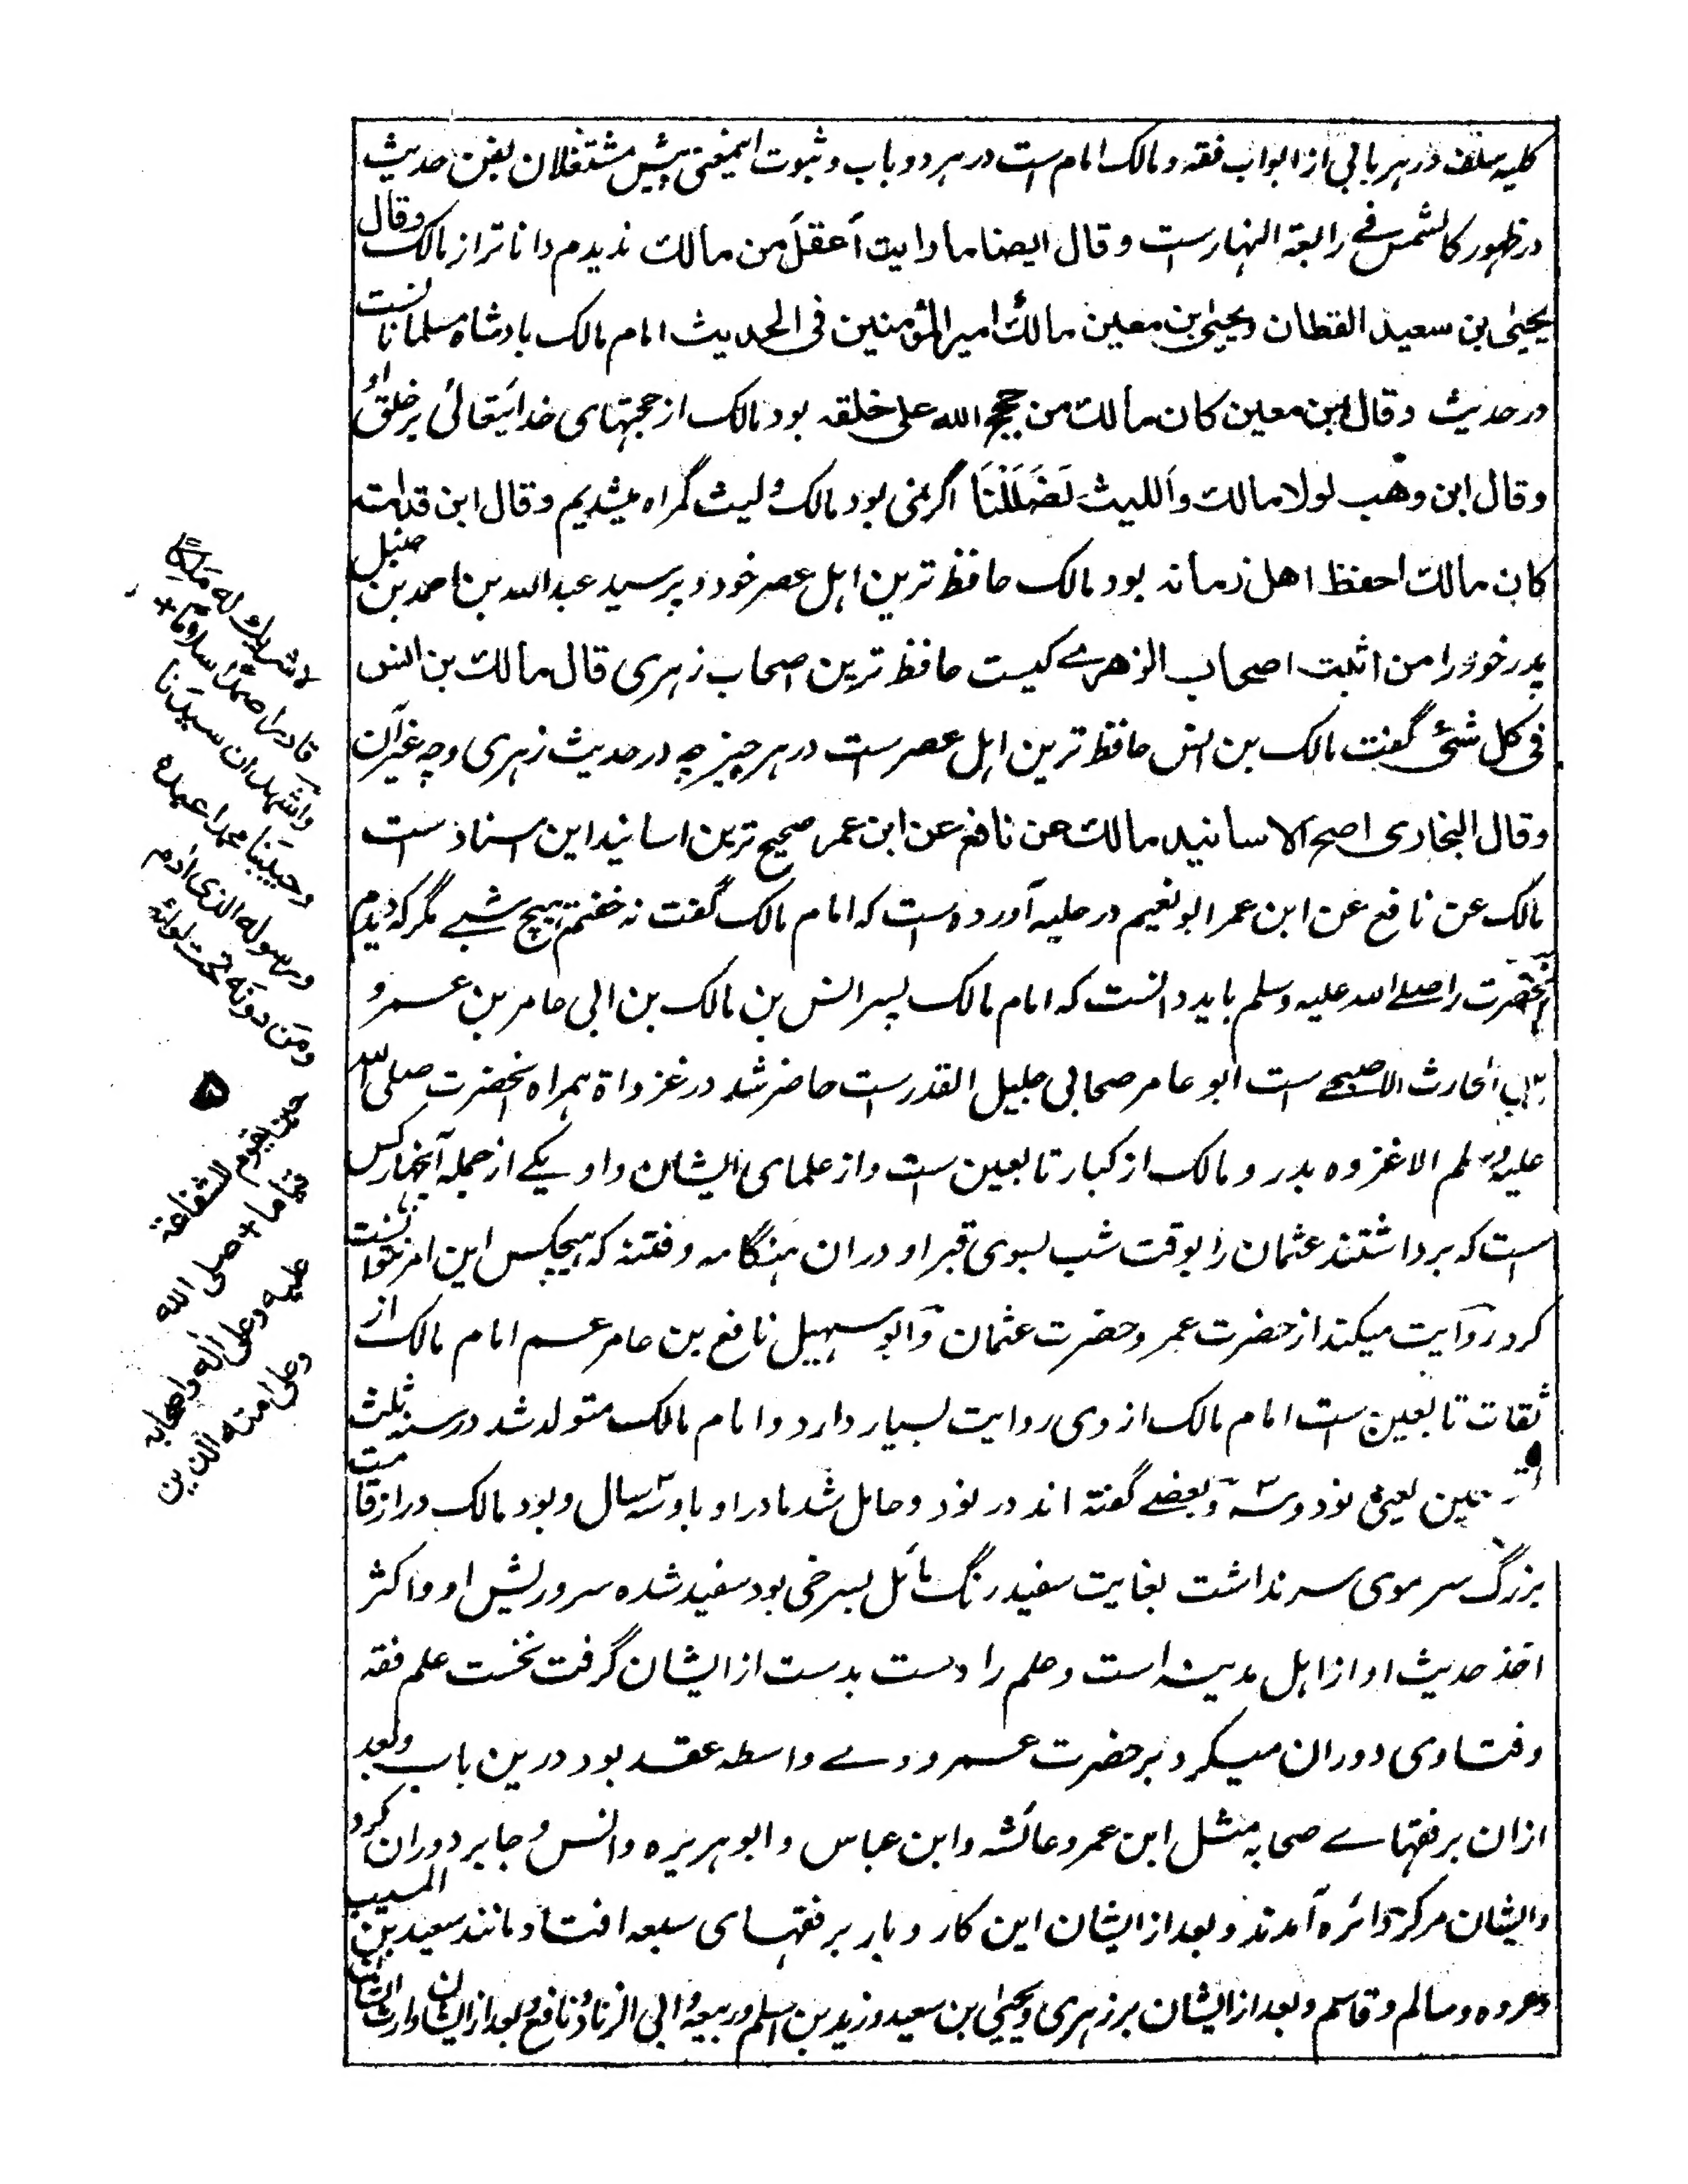 کلیه سلف در هر بابی از ابواب فقه و مالک امام ست در هر دو باب و ثبوت اینمعنی پیش مشتغلان بفن حدیث
در ظهور کالشمس فی رابعة النهار ست وقال ایضا ما رایت اَعقلَ من مالک ندیدم دانا تر از مالک وقال
یحییٰ بن سعید القطان و یحییٰ بن معین مالکٌ امیر المؤمنین فی الحدیث امام مالک بادشاه مسلمانانست
در حدیث وقال ابن معین کان مالک من حجج الله علی خلقه بود مالک از حجتهای خدایتعالی بر خلق او
وقال ابن وهب لولا مالک واللیث لَضَلَلْنَا اگر نمی بود مالک و لیث گمراه میشدیم وقال ابن قدامه
کان مالک احفظ اهل زمانه بود مالک حافظ ترین اہل عصر خود و پرسید عبد الله بن احمد بن حنبل
پدر خود را من اثبت اصحاب الزهری کیست حافظ ترین اصحاب زہری قال مالک بن انس
فی کل شئ گفت مالک بن انس حافظ ترین اہل عصر ست در ہر چیز چه در حدیث زہری و چه غیر آن
وقال البخاری اصح الاسانید مالک عن نافع عن ابن عمر صحیح ترین اسانید این اسناد ست
مالک عن نافع عن ابن عمر ابو نعیم در حلیه آورده ست که امام مالک گفت نه خفتم ہیچ شبے مگر که دیدم
آنحضرت را صلے الله علیه وسلم باید دانست که امام مالک پسر انس بن مالک بن ابی عامر بن عمرو
بن الحارث الاصبحی ست ابو عامر صحابی جلیل القدر ست حاضر شد در غزواة ہمراه آنحضرت صلی الله
علیه وسلم الا غزوه بدر و مالک از کبار تابعین ست و از علمای ایشان و او یکے از جمله آنچهار کس
ست که برداشتند عثمان را بوقت شب بسوی قبر او در ان ہنگامه و فتنه که ہیچکس این امر نتوانست
کرد روایت میکند از حضرت عمر و حضرت عثمان و ابو سہیل نافع بن عامر عم امام مالک از
ثقات تابعین ست امام مالک از وی روایت بسیار دارد و امام مالک متولد شد در سنه ثلث
و تسعین یعنی نود و سه و بعضے گفته اند در نود و حامل شد مادر او باو سه سال و بود مالک دراز قامت
بزرگ سر موی سر نداشت بغایت سفید رنگ مائل بسرخی بود سفید شده سر و ریش او و اکثر
اخذ حدیث او از اہل مدینه است و علم را دست بدست از ایشان گرفت نخست علم فقه
و فتاوی دوران میکرد بر حضرت عمر و وے واسطه عقد بود درین باب و بعد
ازان بر فقہاے صحابه مثل ابن عمر و عائشه و ابن عباس و ابو ہریره و انس و جابر دوران کرد
و ایشان مرکز دائره آمدند و بعد از ایشان این کار و بار بر فقہای سبعه افتاد مانند سعید بن المسیب
و عروه و سالم و قاسم و بعد از ایشان بر زہری و یحییٰ بن سعید و زید بن اسلم و ربیعه و ابی الزناد و نافع و بعد از ایشان وارث
لا شریک له
قادرا صمدا
واشهد ان سیدنا
وحبیبنا محمدا عبده
ورسوله الذی ادم
ومن دونه تحت لوائه
حین یقوم للشفاعة
صلی الله
علیه وعلی اله واصحابه
وعلی امته الذین